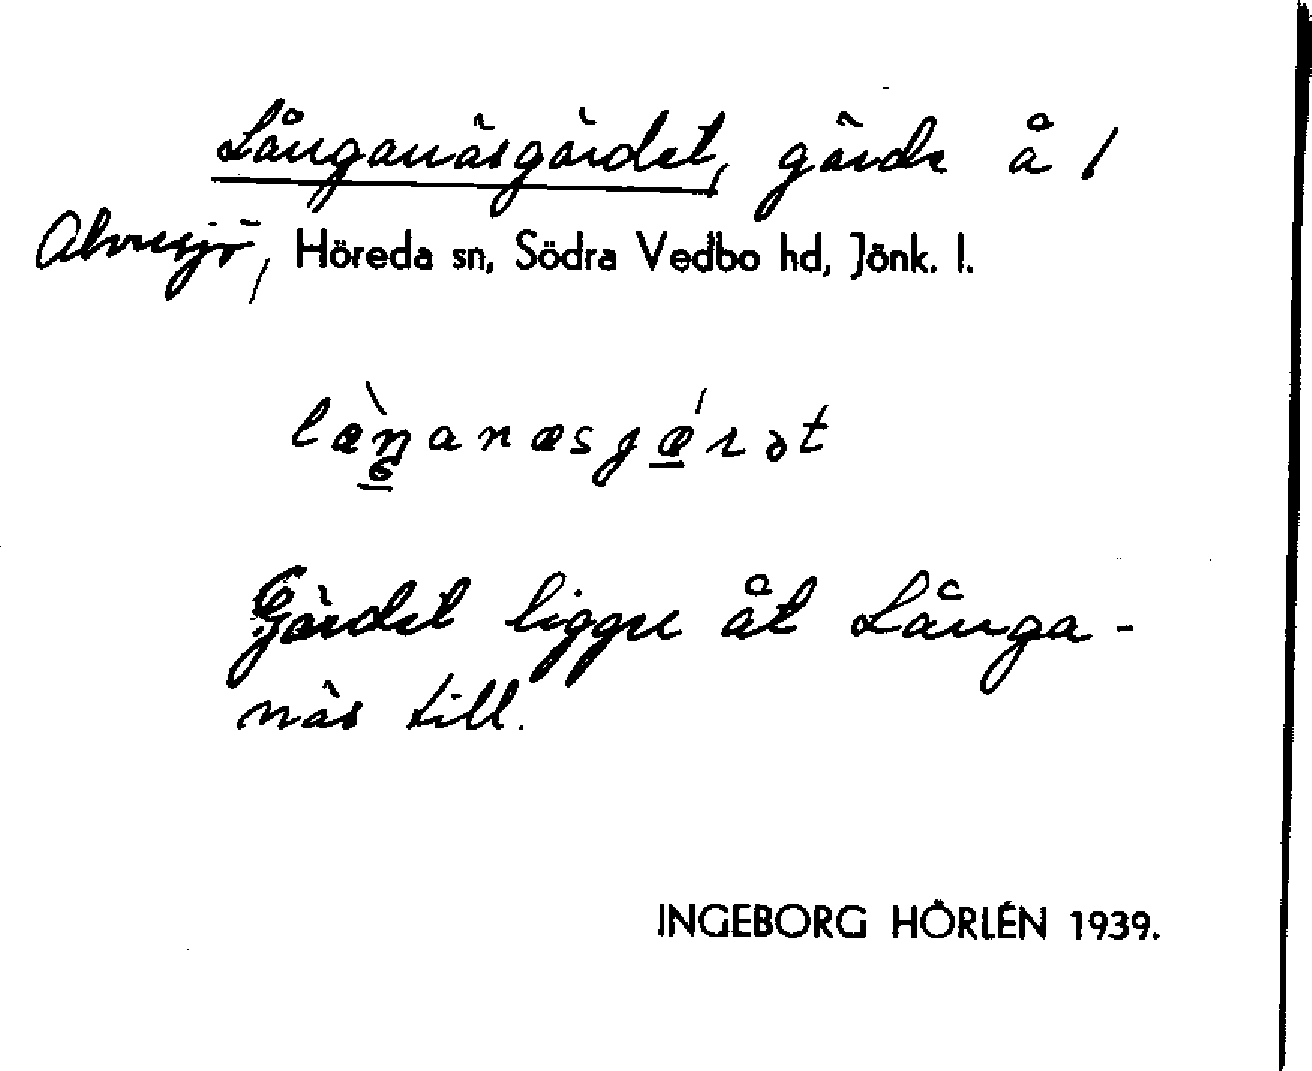 Långanäsgärdet, gärde å 1
Alvresjö, Höreda sn, Södra Vedbo hd, Jönk. l.
Gärdet ligger åt Långa-
näs till.
INGEBORG HÖRLÉN 1939.